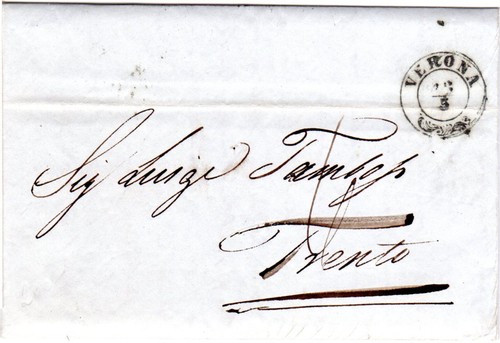 VERONA
5
Sig Luigi Tambosi
Trento